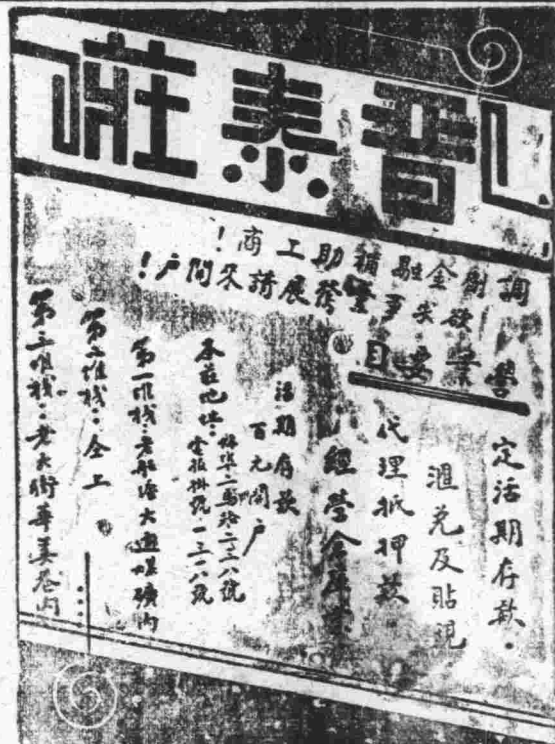 晉泰莊
調劑金融輔助工商！
欲求事業發展請來開戶！
營業要目
定活期存款．
滙兌及貼現
代理抵押放
經營倉庫業
活期存款
百元開戶
本莊地址：
蚌埠二馬路二三八號
電報掛號一三一八號
第一堆栈：老船塘大通煤礦內
第二堆栈：仝上
第三堆栈：老大街華美巷內